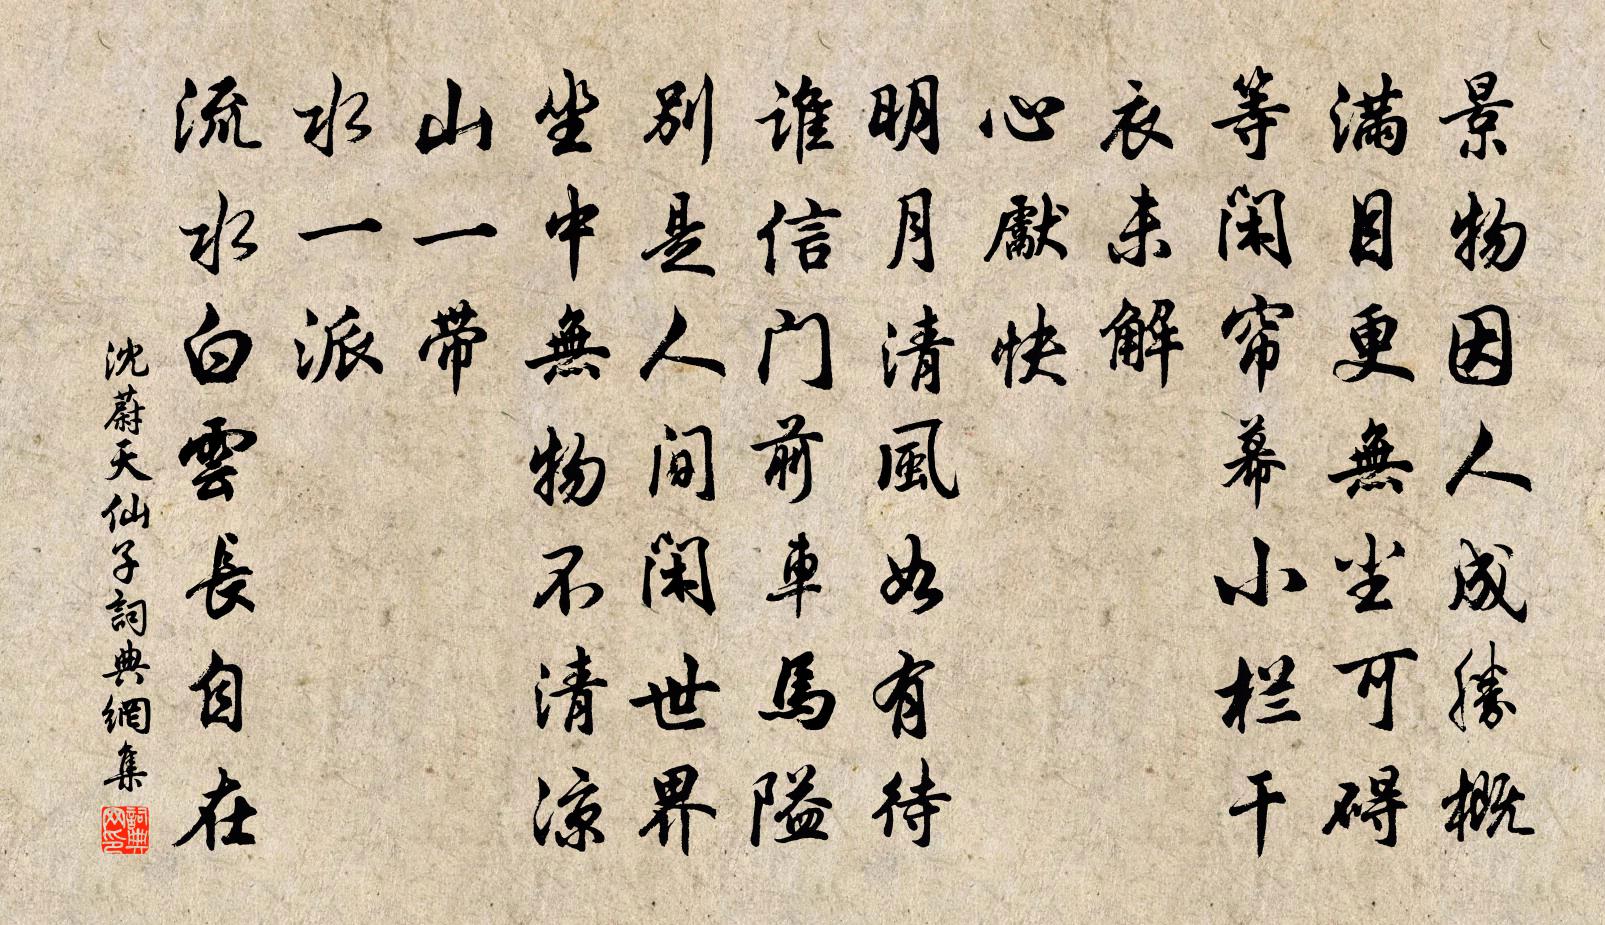 景物因人成勝概
满目更無尘可碍
等闲帘幕小栏干
衣未解
心獻快
明月清風如有待
谁信门前車馬隘
别是人间闲世界
坐中無物不清涼
山一带
水一派
流水白雲長自在
沈蔚天仙子詞典網集
詞典网印